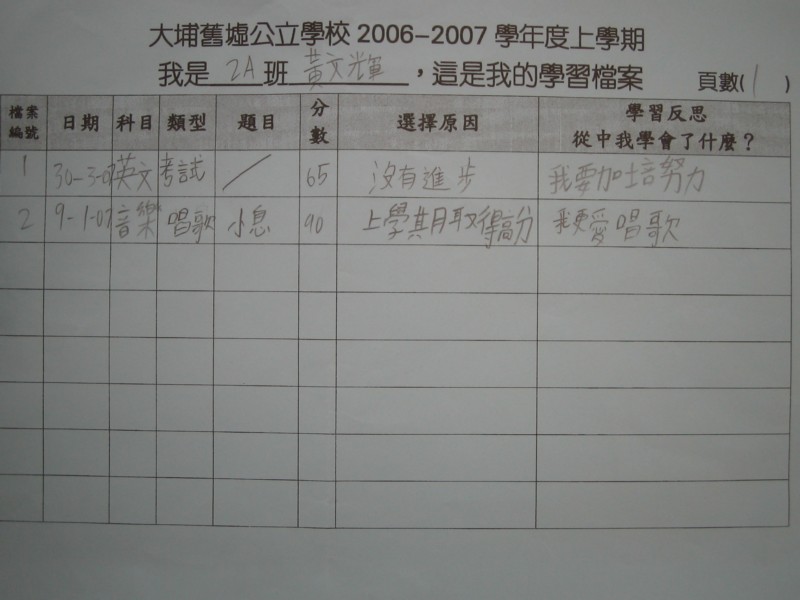 大埔舊墟公立學校 2006-2007 學年度上學期
我是 2A 班 黃文輝，這是我的學習檔案 頁數(1)
檔案編號 日期 科目 類型 題目 分數 選擇原因 學習反思 從中我學會了什麼？
1 30-3-07 英文 考試 / 65 沒有進步 我要加培努力
2 9-1-07 音樂 唱歌 小息 90 上學期取得高分 我更愛唱歌